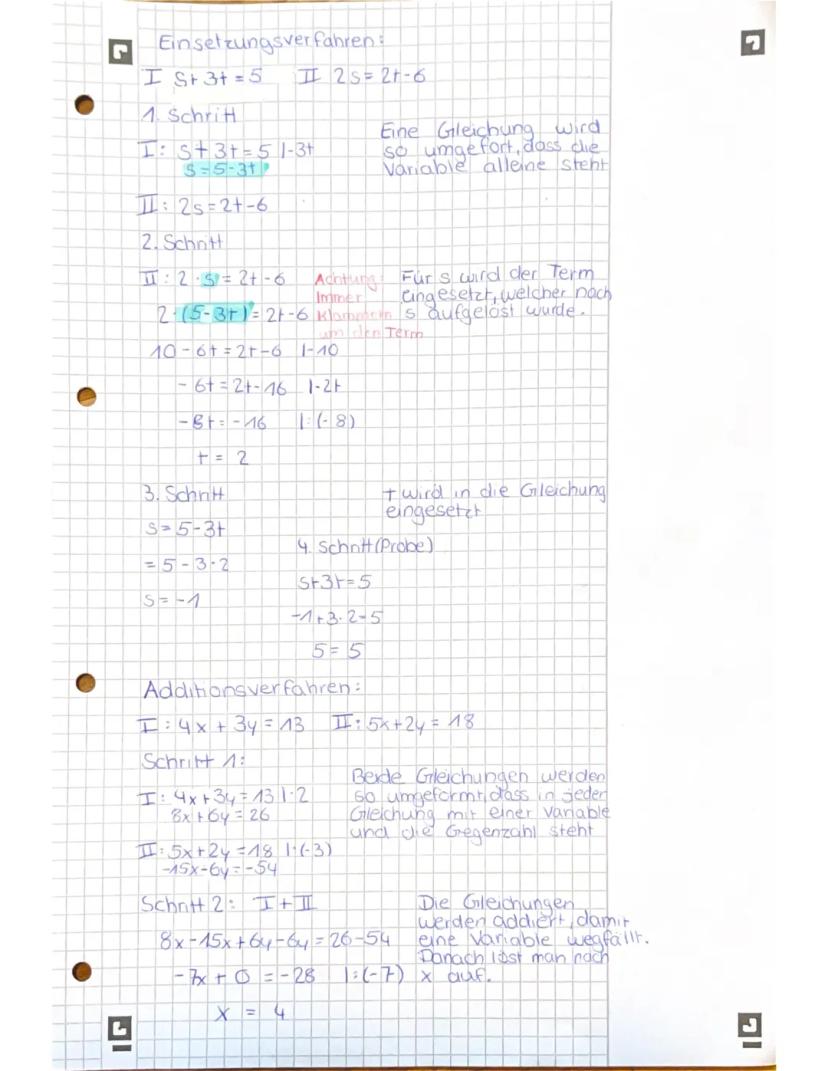 Einsetzungsverfahren:
I S+3t=5 II 2s=2t-6
1. Schritt
I: S+3t=5 |-3t
s=5-3t
Eine Gleichung wird
so umgefort, dass die
Variable alleine steht
II: 2s=2t-6
2. Schritt
II: 2·s=2t-6
2·(5-3t)=2t-6
Achtung:
Immer
Klammern
um den Term
Für s wird der Term
eingesetzt, welcher nach
s aufgelöst wurde.
10-6t=2t-6 |-10
-6t=2t-16 |-2t
-8t=-16 |:(-8)
t=2
3. Schritt
t wird in die Gleichung
eingesetzt
S=5-3t
=5-3·2
S=-1
4. Schritt (Probe)
S+3t=5
-1+3·2=5
5=5
Additionsverfahren:
I: 4x+3y=13 II: 5x+2y=18
Schritt 1:
I: 4x+3y=13 |·2
8x+6y=26
Beide Gleichungen werden
so umgeformt, dass in jeder
Gleichung mit einer Variable
und die Gegenzahl steht
II: 5x+2y=18 |·(-3)
-15x-6y=-54
Schritt 2: I+II
8x-15x+6y-6y=26-54
-7x+0=-28 |:(-7)
x=4
Die Gleichungen
werden addiert, damit
eine Variable wegfällt.
Danach löst man nach
x auf.